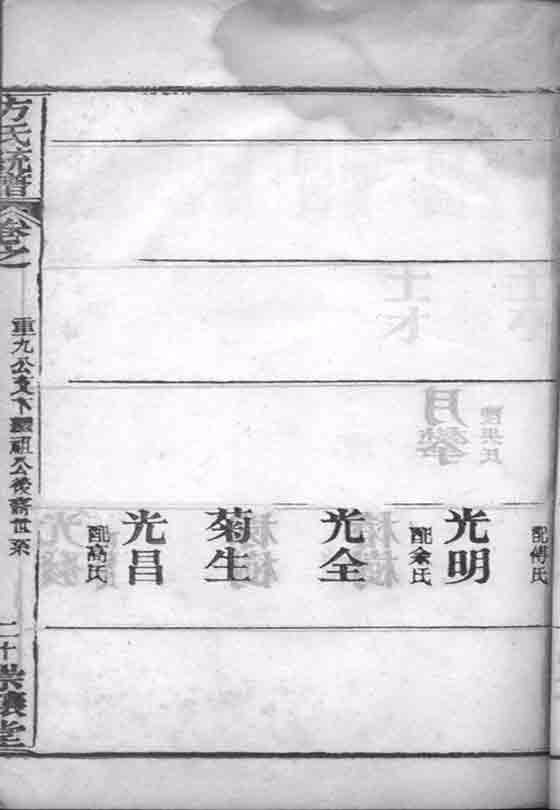 配傅氏
光明
配余氏
光全
菊生
光昌
配高氏
方氏統譜
卷之
重九公支下顯祖公後裔世系
二十
崇讓堂